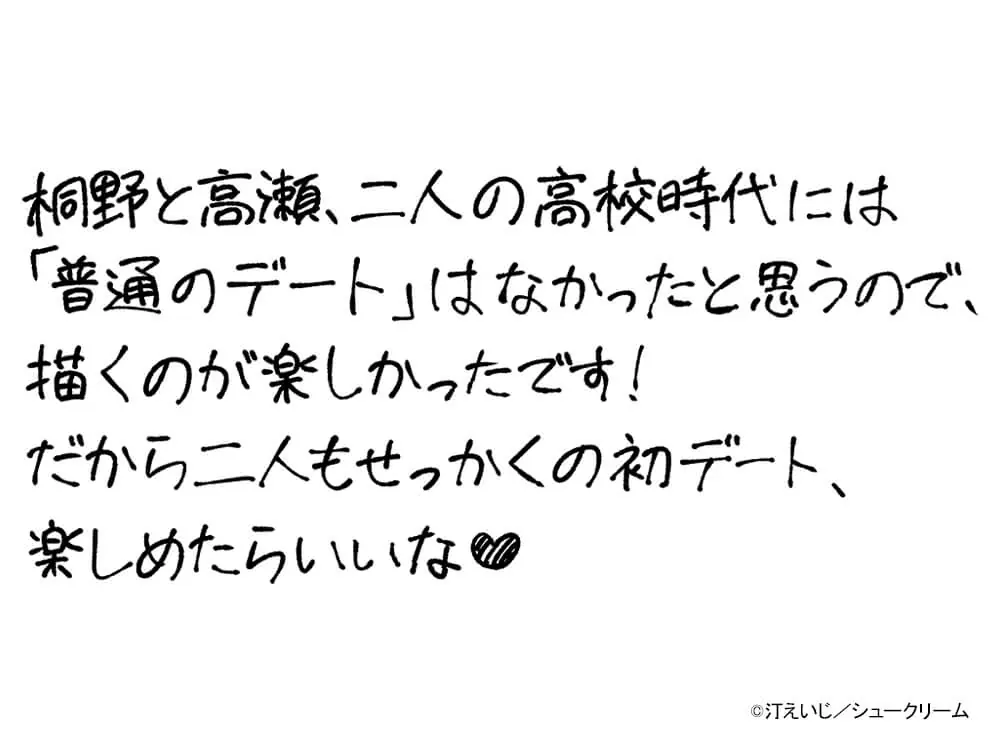 桐野と高瀬、二人の高校時代には
「普通のデート」はなかったと思うので、
描くのが楽しかったです!
だから二人もせっかくの初デート、
楽しめたらいいな♥
©汀えいじ／シュークリーム